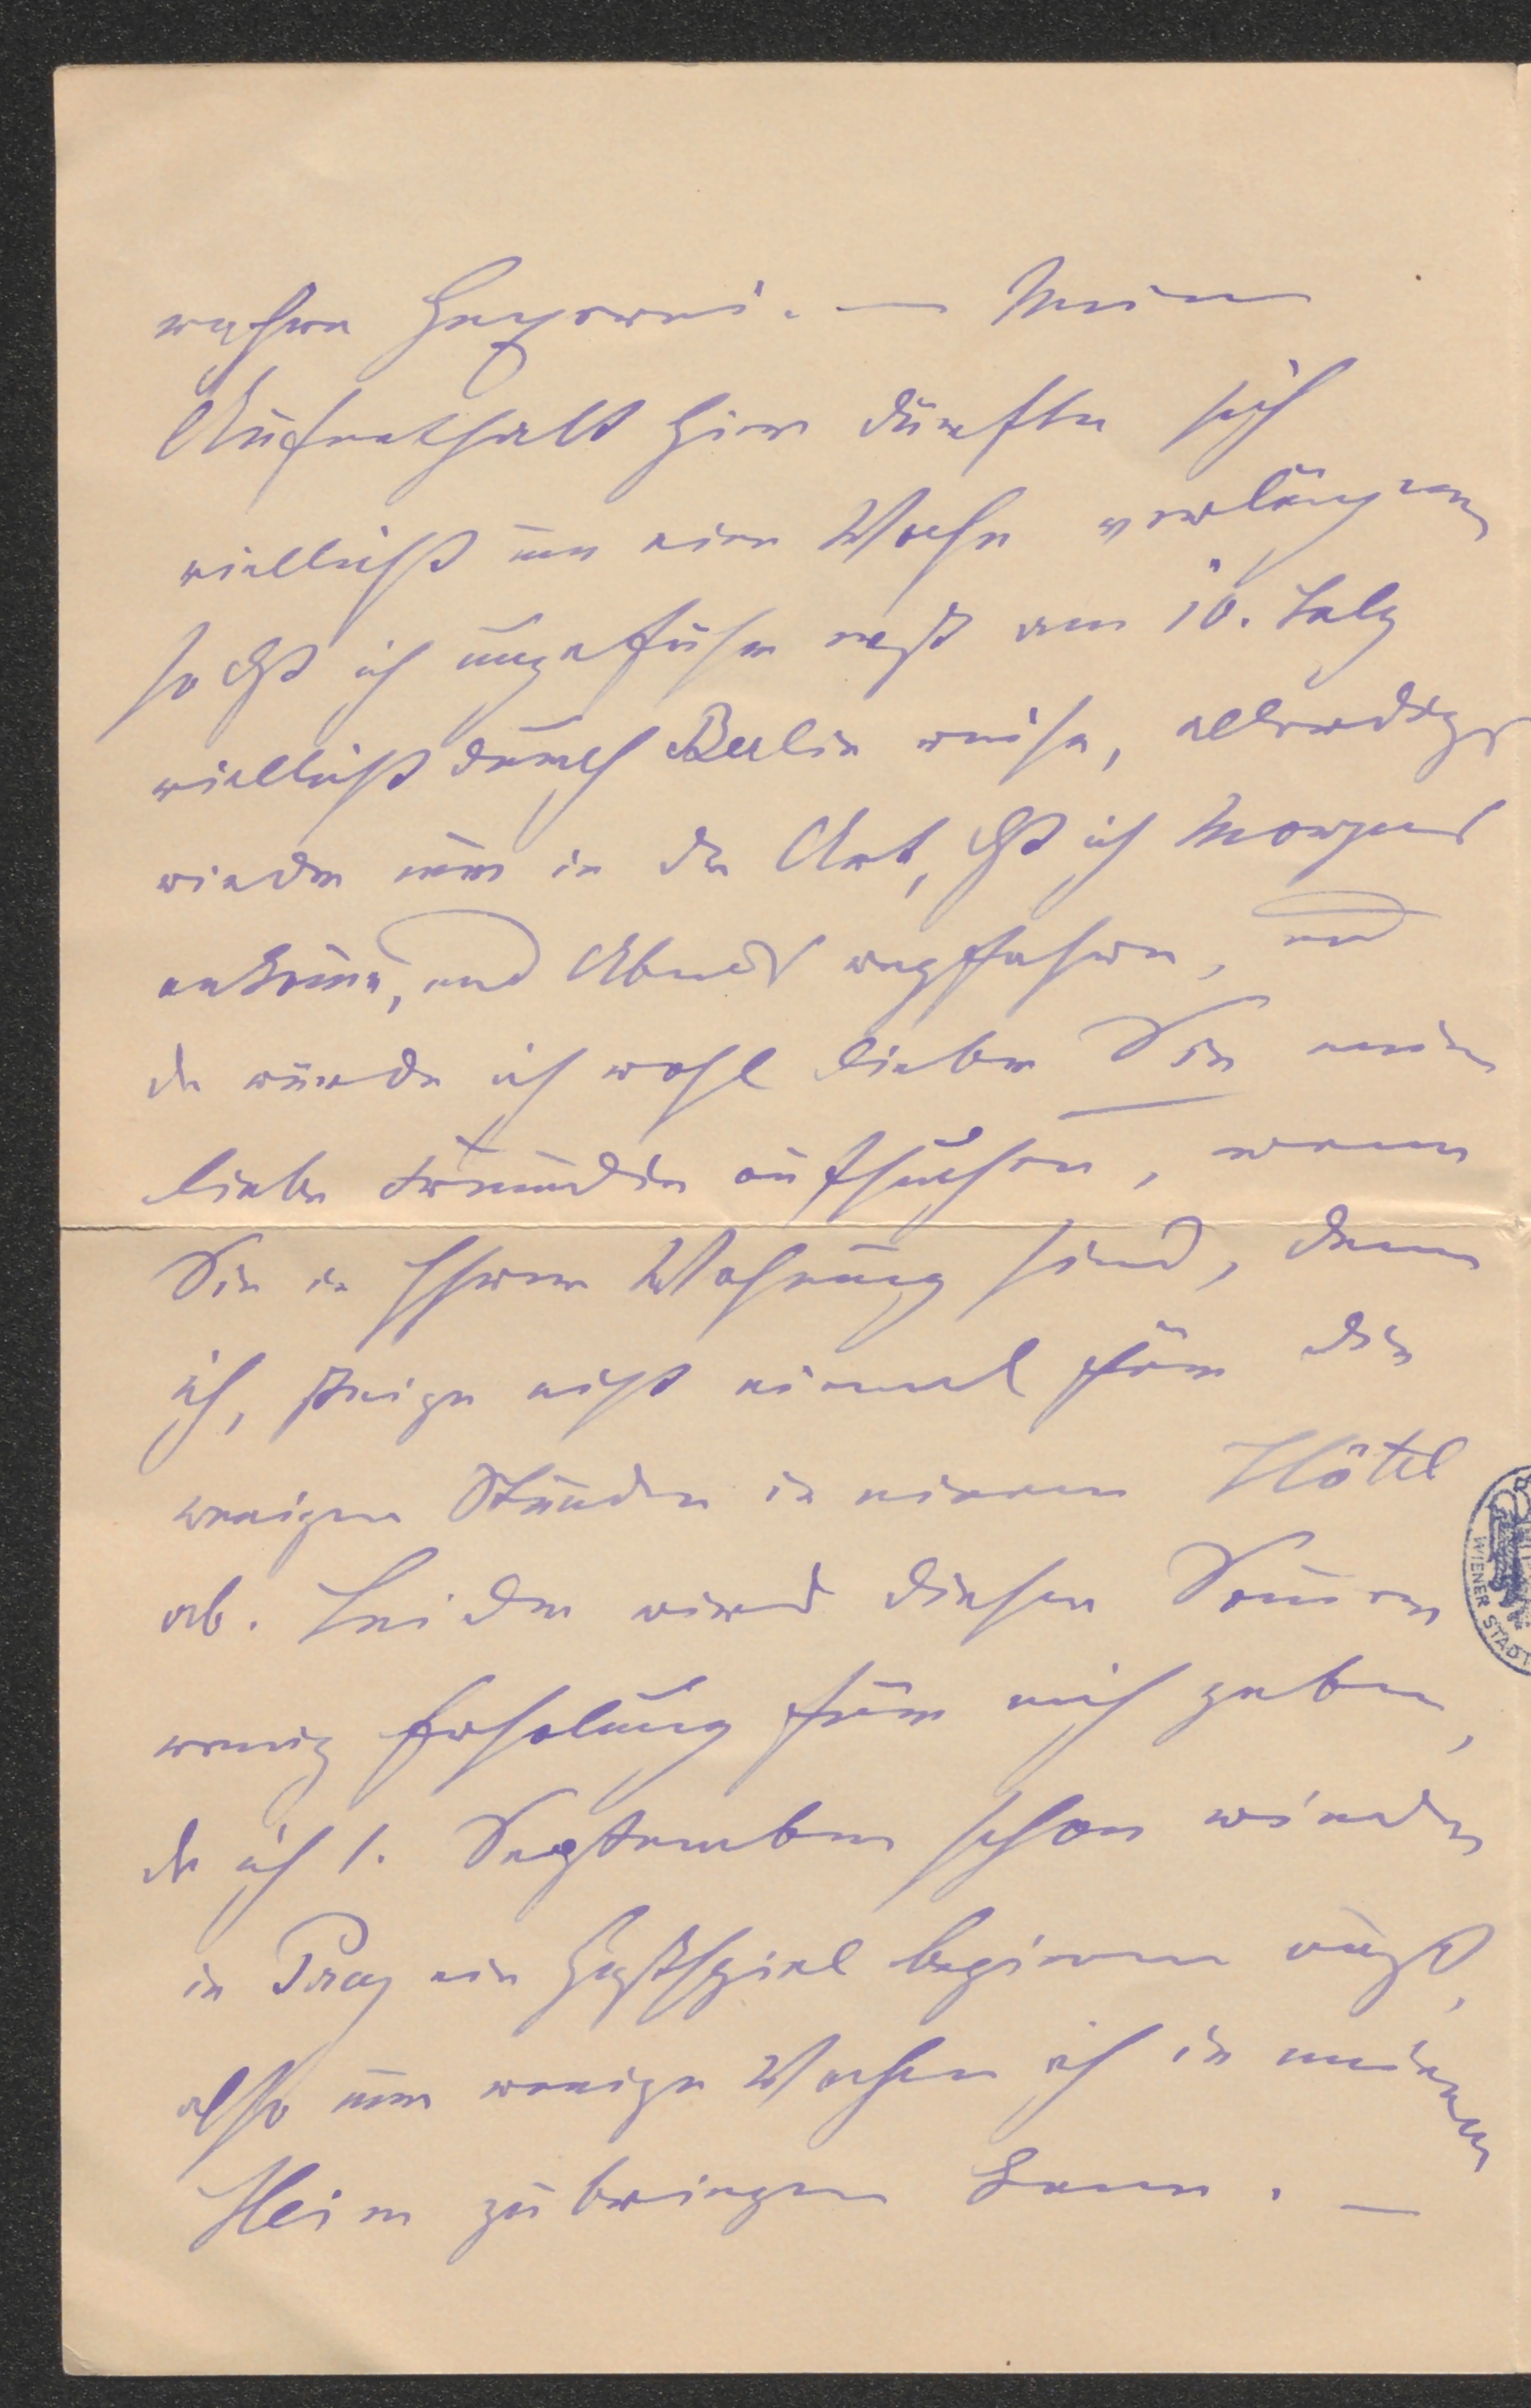 wahre Hexerei. — Mein
Aufenthalt hier dürfte sich
vielleicht um eine Woche verlängern
so dß ich ungefähr erst am 10. July
vielleicht durch Berlin reise, allerdgs
wieder nur in der Art, dß ich Morgens
ankom̄e, und Abends wegfahre, und
da würde ich wohl lieber Sie meine
liebe Freundin aufsuchen, wenn
Sie in Ihrer Wohnung sind, denn
ich, steige nicht einmal für die
wenigen Stunden in einem Hôtel
ab. Leider wird dieser Som̄er
wenig Erholung für mich geben,
da ich 1. September schon wieder
in Prag ein Gastspiel beginnen muß,
also nur wenige Wochen ich in meinem
Heim zubringen kann. —
WIENER STADT